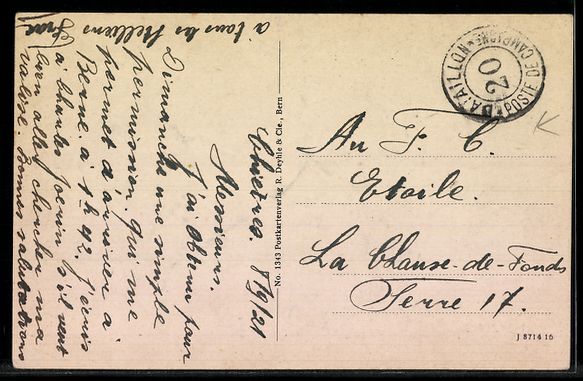 Chiètres. 8/9/21
Messieurs.
J'ai obtenu pour
Dimanche une simple
permission qui me
permet d'arriver à
Berne à 1h 42. J'écris
à Charles Joerin s'il veut
bien aller chercher ma
valise. Bonnes salutations
à tous les Stelliens
No. 1343 Postkartenverlag R. Deyhle & Cie., Bern
BATAILLON
20
POSTE DE CAMPAGNE
Au F. C.
Etoile.
La Chaux-de-Fonds
Serre 17.
J 8714 16
K